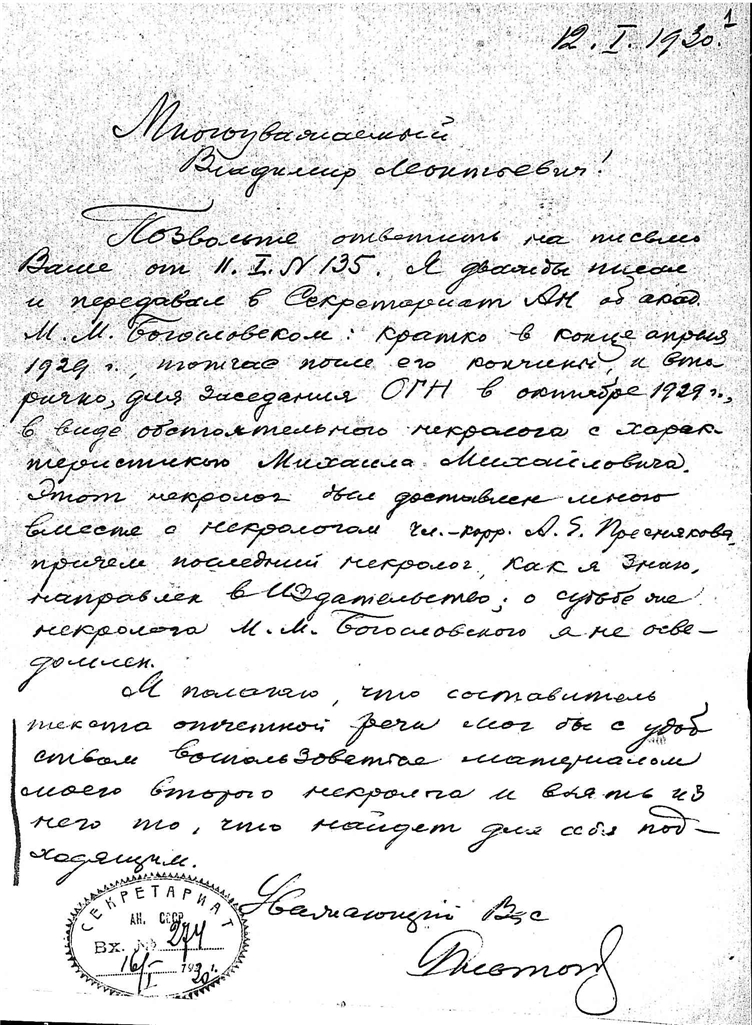 1
12. I. 1930.
Многоуважаемый
Владимир Леонтьевич!
Позвольте ответить на письмо
Ваше от 11. I. N 135. Я дважды писал
и передавал в Секретариат АН об акад.
М. М. Богословском: кратко в конце апреля
1929 г., тотчас после его кончины, и вто
рично, для заседания ОГН в октябре 1929 г.,
в виде обстоятельного некролога с харак-
теристикою Михаила Михайловича.
Этот некролог был доставлен мною
вместе с некрологом чл.-корр. А. Е. Преснякова,
причем последний некролог, как я знаю,
направлен в Издательство; о судьбе же
некролога М. М. Богословского я не осве-
домлен.
Я полагаю, что составитель
текста отчетной речи мог бы с удоб
ством воспользоваться материалом
моего второго некролога и взять из
него то, что найдет для себя под-
ходящим.
Уважающий Вас
Платонов
СЕКРЕТАРИАТ
АН. СССР
Вх. № 274
16/I 1930 г.